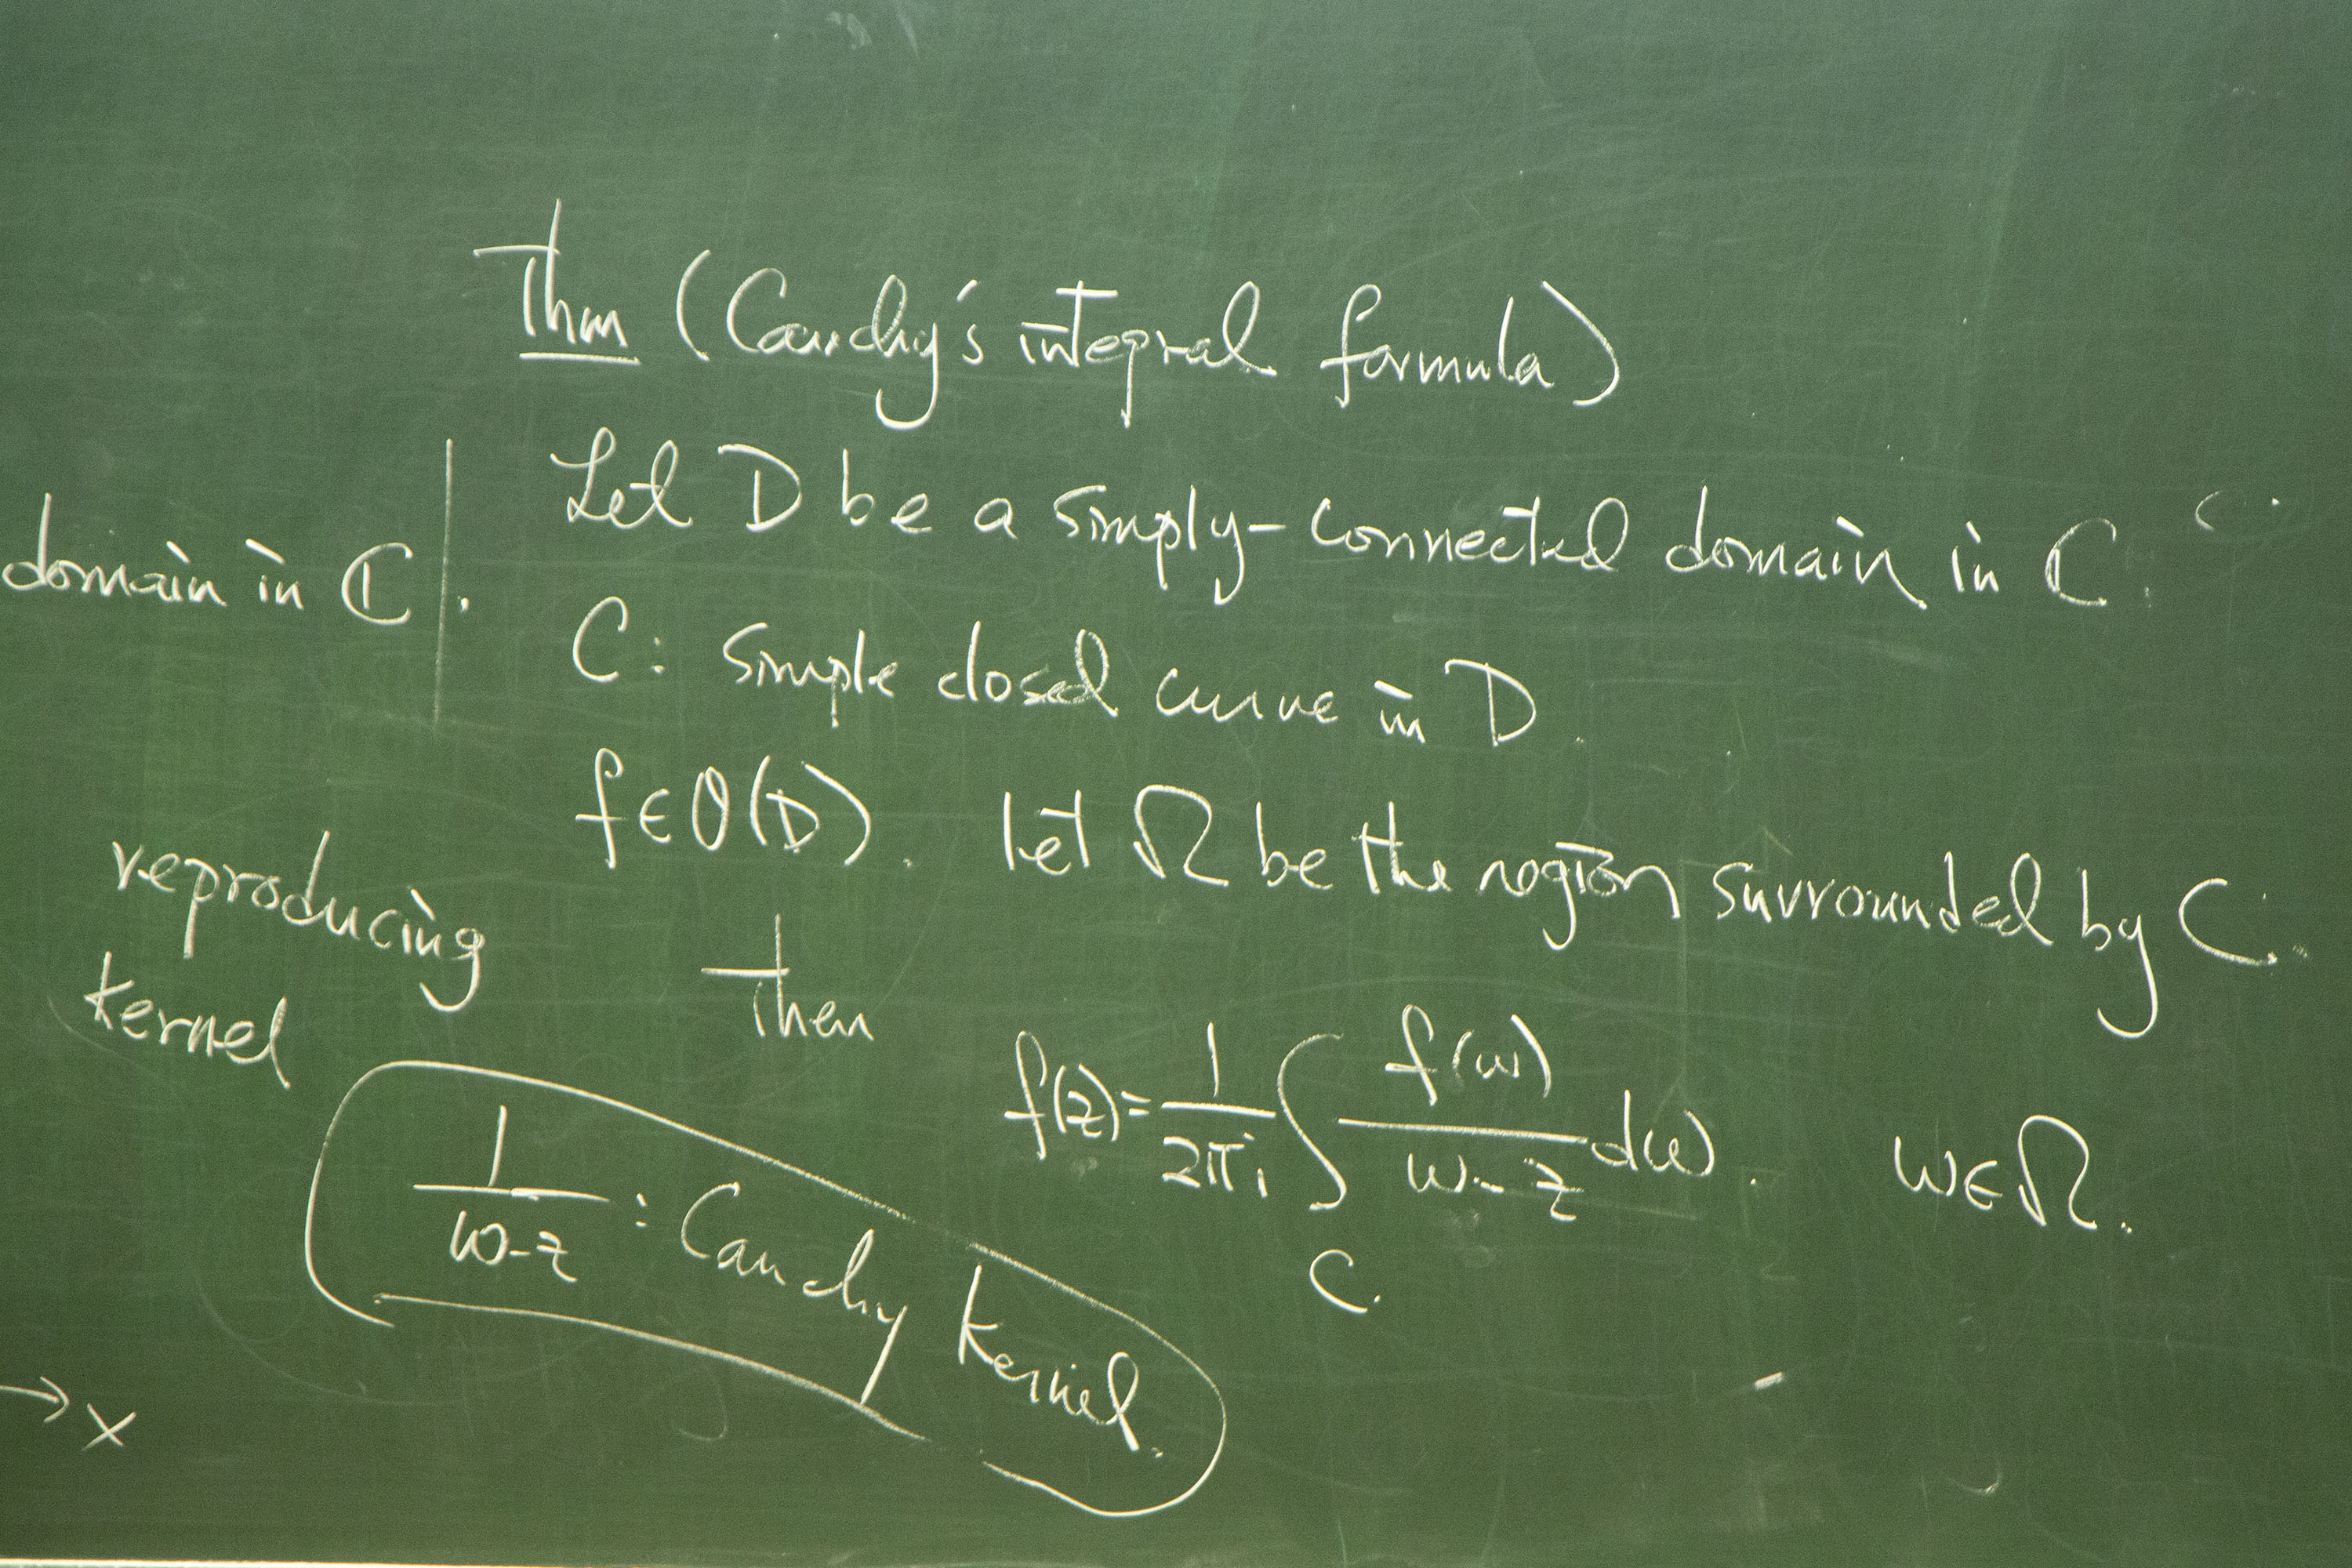 Thm (Cauchy's integral formula)
Let D be a simply-connected domain in ℂ.
domain in ℂ.
C: simple closed curve in D.
f∈O(D). let Ω be the region surrounded by C.
reproducing
kernel
Then
f(z)=1/2πi ∫_C f(w)/(w-z) dw. w∈Ω.
1/(w-z) : Cauchy kernel.
→x